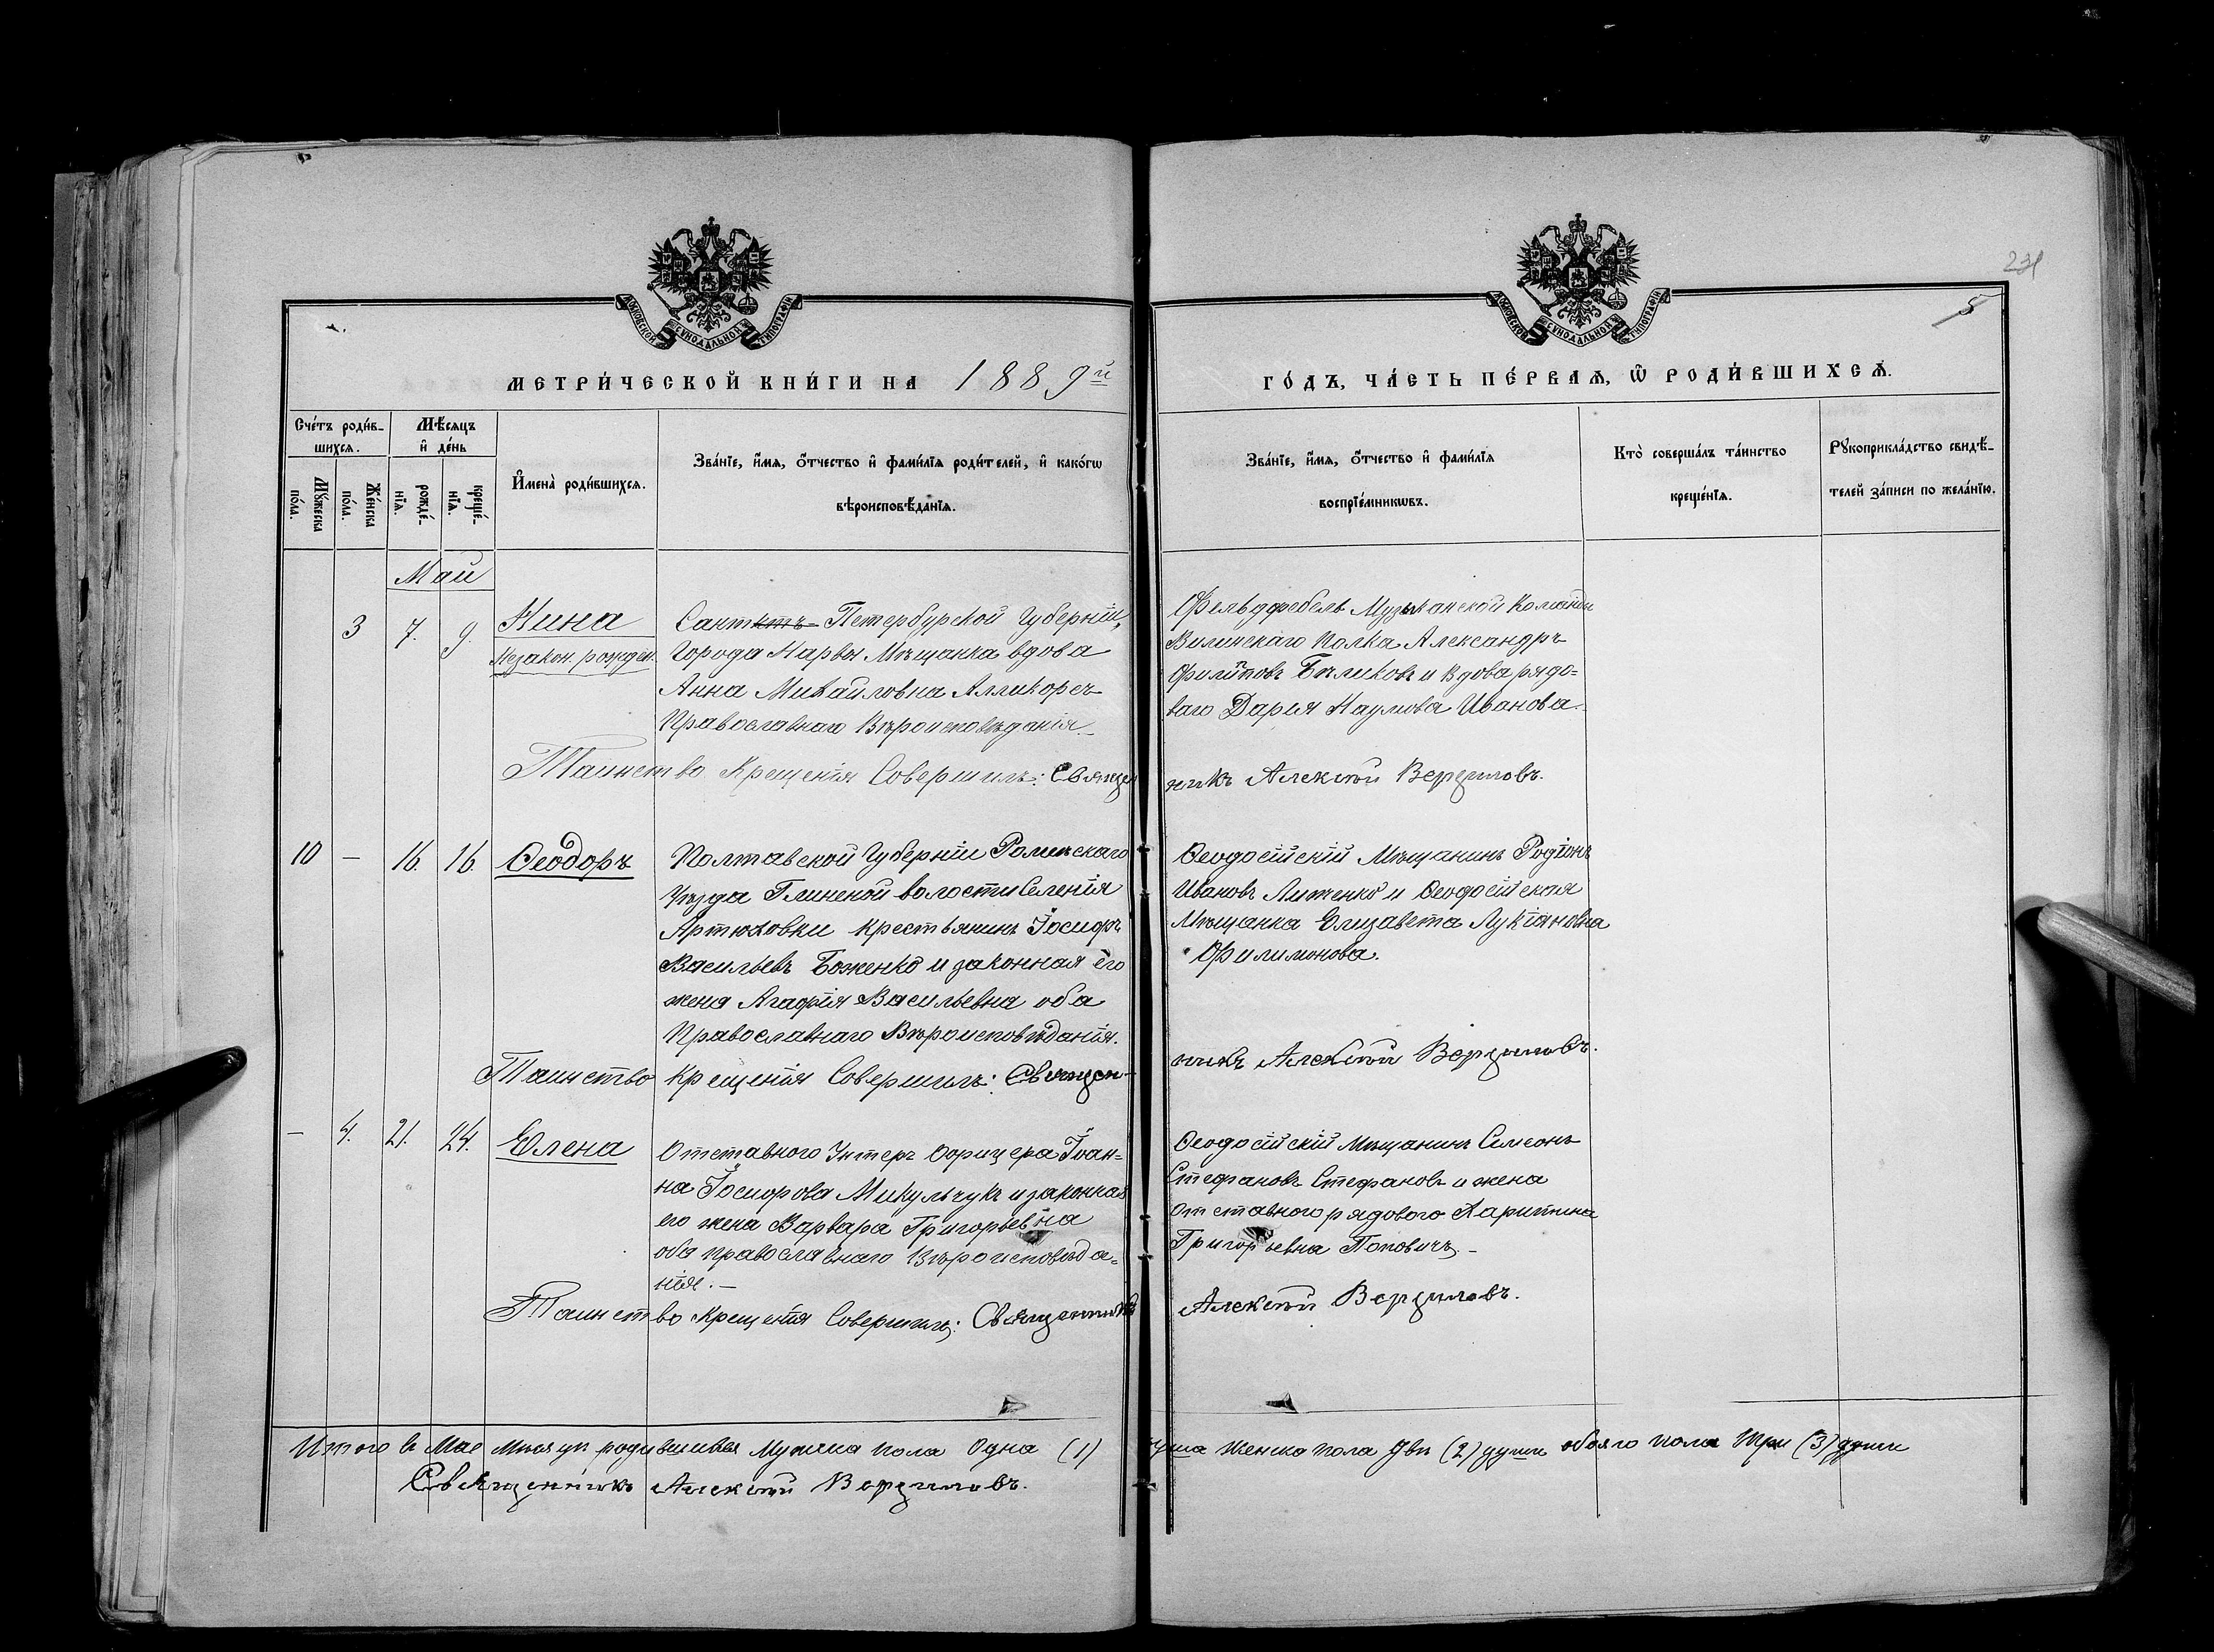 231
5
МОСКОВСКОЙ СѴНОДАЛЬНОЙ ТИПОГРАФІИ
МОСКОВСКОЙ СѴНОДАЛЬНОЙ ТИПОГРАФІИ
МЕТРИ́ЧЕСКОЙ КНИ́ГИ НА 1889й
ГО́ДЪ, ЧА́СТЬ ПЕ́РВАѦ, Ѡ҆ РОДИ́ВШИХСѦ.
Сче́тъ роди́в-
шихсѧ.
Мꙋ́жеска по́ла.
Же́нска по́ла.
Мѣ́сѧцъ
и҆ де́нь
рожде́-нїѧ.
креще́-нїѧ.
И҆мена̀ роди́вшихсѧ.
Зва́нїе, и҆́мѧ, ѻ҆́тчество и҆ фами́лїѧ роди́телей, и҆ како́гѡ
вѣроисповѣ́данїѧ.
Зва́нїе, и҆́мѧ, ѻ҆́тчество и҆ фами́лїѧ
воспрїе́мникѡвъ.
Кто̀ соверша́лъ та́инство
креще́нїѧ.
Рꙋкоприкла́дство свидѣ́-
телей за́писи по жела́нїю.
Май
3 7. 9. Нина
Незакон. рожден.
Санктъ-Петербурской Губерніи,
Города Нарвы Мѣщанка вдова
Анна Михайловна Алликоръ
Православнаго Вѣроисповѣданія.
Фельдфебель Музыканской Команды
Виленскаго Полка Александръ
Филиповъ Бѣликовъ и Вдова рядо=
ваго Дарья Наумова Иванова.
Таинство Крещенія Совершилъ: Священ
никъ Алексѣй Верциловъ.
10 — 16. 16. Ѳеодоръ
Полтавской Губерніи Роменскаго
Уѣзда Глинской волости Селенія
Артюховки крестьянинъ Іосифъ
Васильевъ Боженко и законная его
жена Агафія Васильевна оба
Православнаго Вѣроисповѣданія.
Ѳеодосійскій Мѣщанинъ Родіонъ
Ивановъ Лиженко и Ѳеодосійская
Мѣщанка Елизавета Лукіановна
Филимонова.
Таинство Крещенія Совершилъ: Священ-
никъ Алексѣй Верциловъ.
— 4. 21. 24. Елена
Отставного Унтеръ Офицера Іоан=
на Іосифова Микульчукъ и законная
его жена Варвара Григорьевна
оба православнаго Вѣроисповѣда=
нія. —
Ѳеодосійскій Мѣщанинъ Симеонъ
Стефановъ Стефановъ и жена
отставного рядового Харитина
Григорьевна Поповичъ. —
Таинство Крещенія Совершилъ: Священникъ
Алексѣй Верциловъ.
Итого въ Мае Мѣсяцѣ родившихся Мужска пола Одна (1) душа Женска пола Двѣ (2) души обоего пола три (3) души
Священникъ Алексѣй Верциловъ.